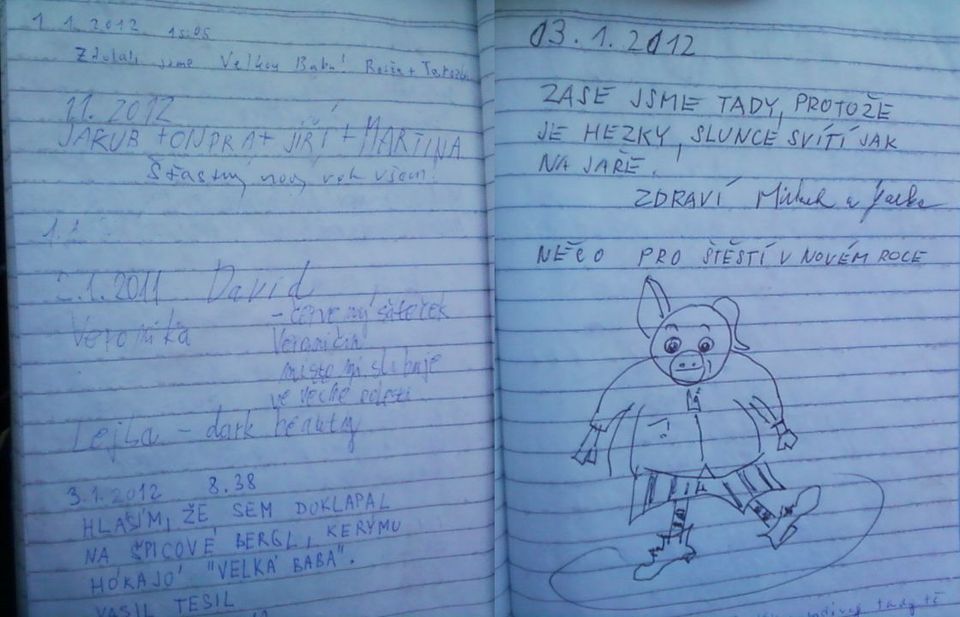 1.1.2012 15.05
Zdolali jsme Velkou Babu!
1.1.2012
JAKUB + ONDRA + JIŘÍ + MARTINA
Šťastný nový rok všem!
1.1
2.1.2011 David
Veronika - červený šáteček
Lejla - dark beauty
3.1.2012 8.38
HLÁSÍM, ŽE SEM DOKLAPAL
NA ŠPICOVÉ BERGL, KERÝMU
HÓKAJÓ "VELKÁ BABA".
VASIL TESIL
03.1.2012
ZASE JSME TADY, PROTOŽE
JE HEZKY, SLUNCE SVÍTÍ JAK
NA JAŘE.
ZDRAVÍ a
NĚČO PRO ŠTĚSTÍ V NOVÉM ROCE
tady